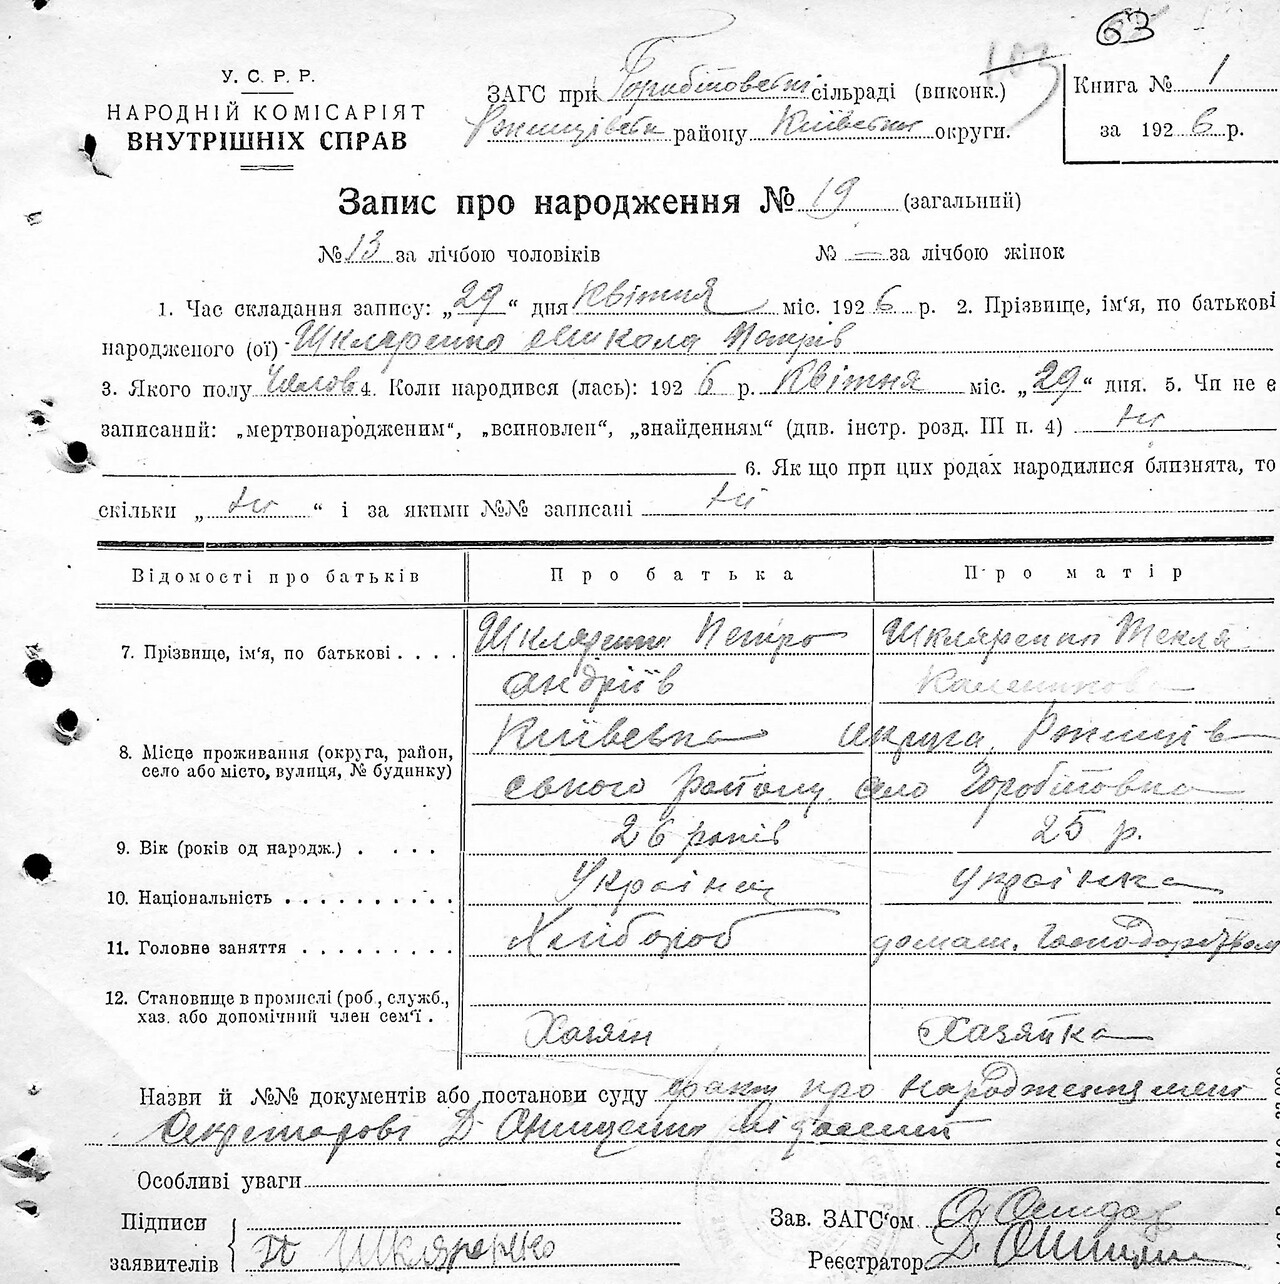 63
103
У. С. Р. Р.
НАРОДНІЙ КОМІСАРІЯТ
ВНУТРІШНІХ СПРАВ
ЗАГС при Горобіївській сільраді (виконк.)
Ржищівськ району Київської округи.
Книга № 1
за 1926 р.
Запис про народження № 19 (загальний)
№ 13 за лічбою чоловіків № — за лічбою жінок
1. Час складання запису: „29“ дня Квітня міс. 1926 р. 2. Прізвище, ім'я, по батькові
народженого (ої) Шкляренко Микола Петрів
3. Якого полу Чолов 4. Коли народився (лась): 1926 р. Квітня міс. „29“ дня. 5. Чи не є
записаний: „мертвонародженим“, „всиновлен“, „знайденням“ (див. інстр. розд. III п. 4) ні
6. Якщо при цих родах народилися близнята, то
скільки „ні“ і за якими №№ записані ні
Відомості про батьків Про батька Про матір
7. Прізвище, ім'я, по батькові . . . . Шкляренко Петро Шкляренко Текля
Андріїв
8. Місце проживання (округа, район, село або місто, вулиця, № будинку) Київська округа, Ржищів
ського району, село
9. Вік (років од народж.) . . . . 26 років 25 р.
10. Національність . . . . . . . . . . Українец українка
11. Головне заняття . . . . . . . . . Хлібороб домаш. господарством
12. Становище в промислі (роб., служб.,
хаз. або допомічний член сем'ї . Хазяїн Хазяйка
Назви й №№ документів або постанови суду факт про народження мені
Секретарові Д. Онищенко відомий
Особливі уваги
Підписи
заявителів П Шкляренко
Зав. ЗАГС'ом
Реєстратор Д. Онищен